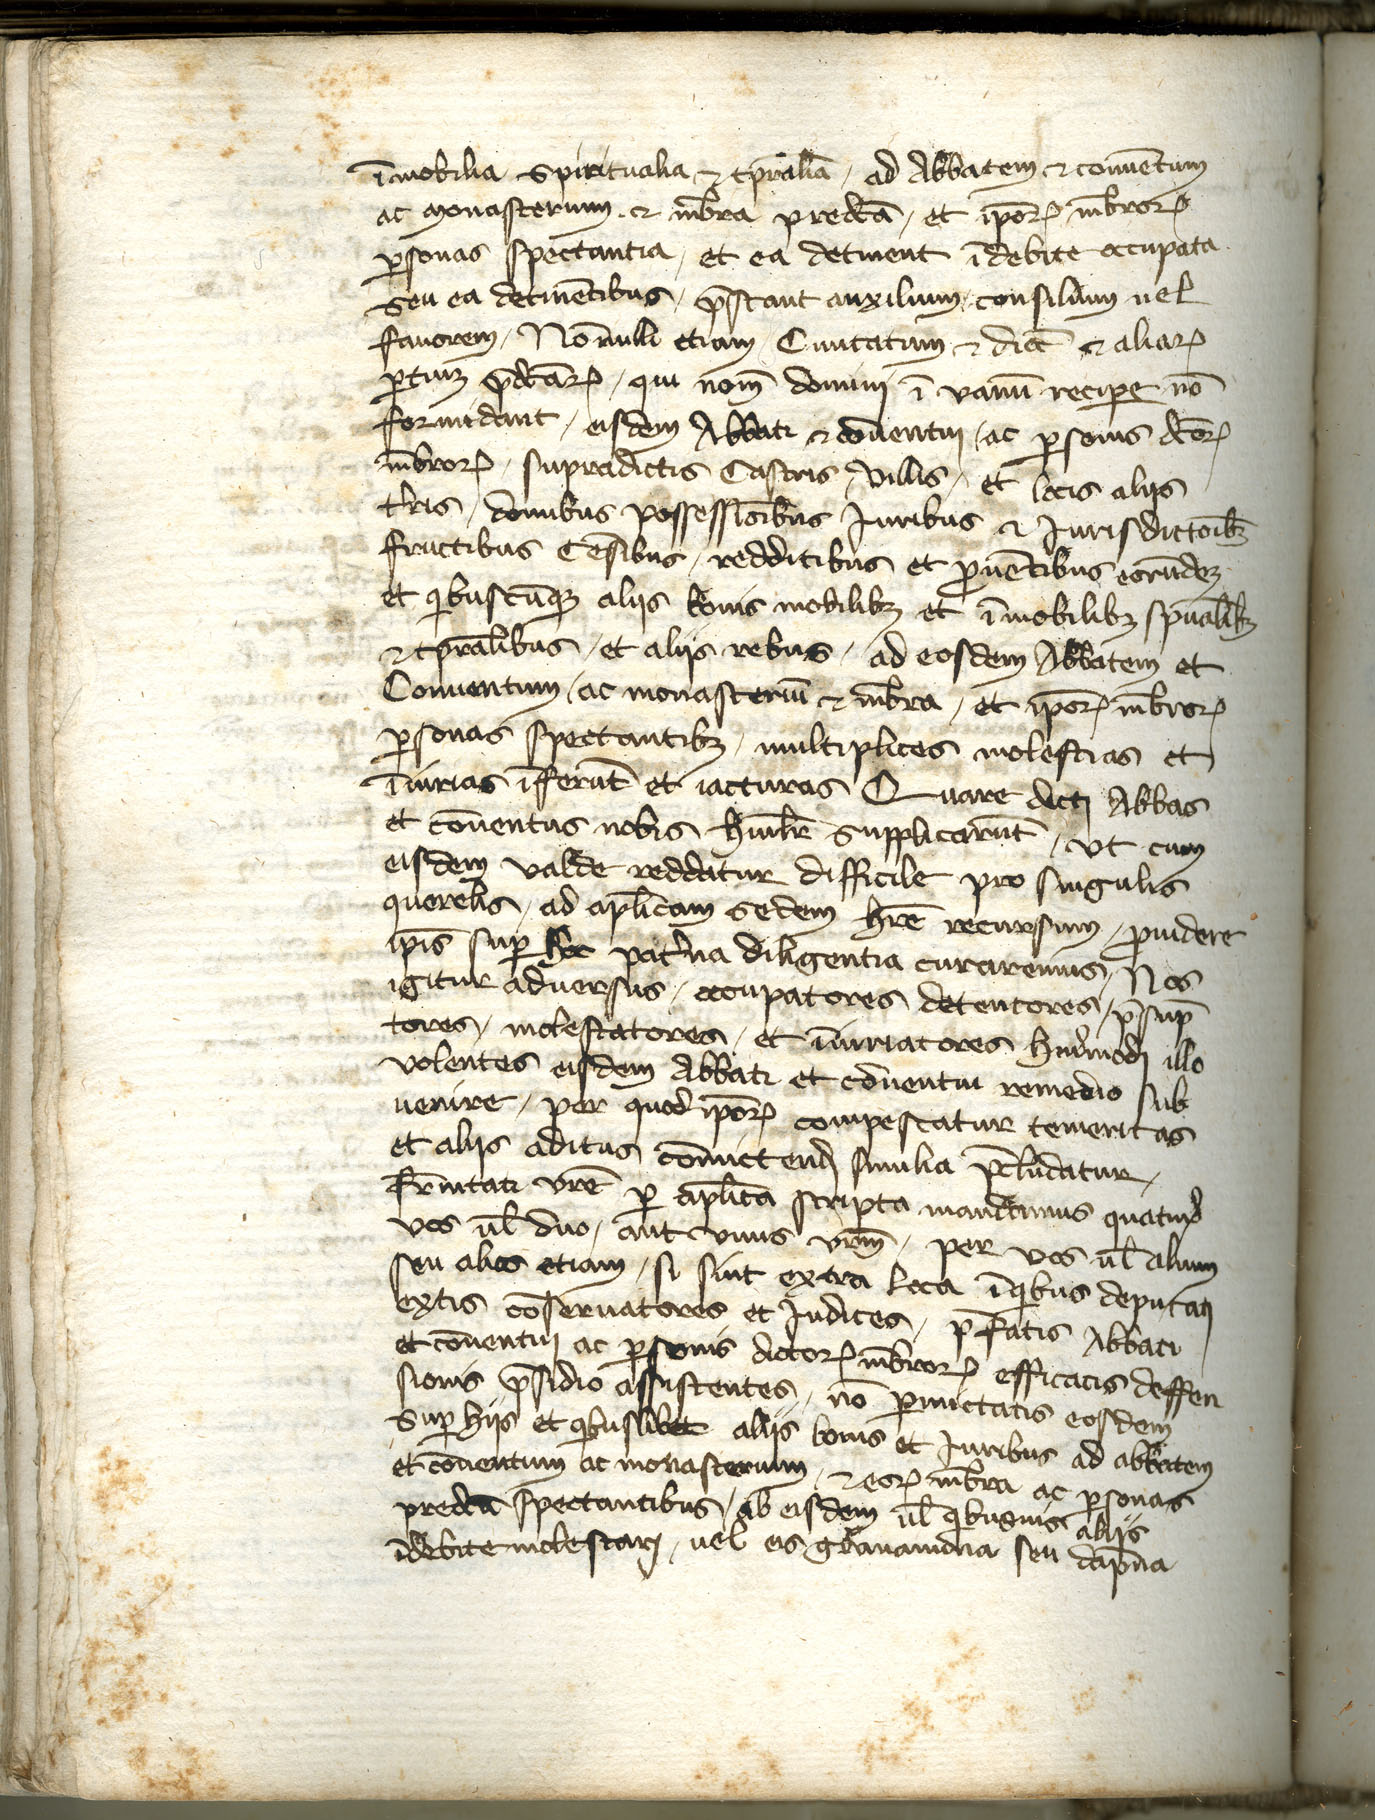 īmobilia spiritualia et tp̄ralia / ad Abbatem et conuentum
ac monasterium et mēbra predc̄a / et ip̄oꝝ mēbroꝝ
ꝑsonas spectantia / et ea detinent īdebite occupata
seu ea detinētibus / p̄stant auxilium / consilium uel
fauorem / Nōnulli etiam Ciuitatum et dioc̄ et aliaꝝ
ꝑtium p̄dc̄aꝝ / qui nom̄ domini ī vanū reciꝑe nō
formidant / eisdem Abbati et cōuentui / ac ꝑsonis dc̄oꝝ
mēbroꝝ / supradictis Castris / villis / et locis aliis
t̄ris / domibus possessiōibus Juribus et Jurisdictōibꝫ
fructibus Cēsibus / redditibus et ꝓuētibus eorūdeꝫ
et qibuscūqꝫ aliis bonis mobilibꝫ et īmobilibꝫ spūalibꝫ
et tp̄ralibus / et aliis rebus / ad eosdem Abbatem et
Conuentum / ac monasteriū et mēbra / et ip̄oꝝ mēbroꝝ
ꝑsonas spectantibꝫ / multiplices molestias et
īiurias īferūt et iacturas Quare dicti Abbas
et cōuentus nobis humilr̄ supplicarūt / vt cum
eisdem valde reddatur difficile pro singulis
querelis / ad apl̄icam sedem hr̄e recursum / ꝓuidere
ip̄is suꝑ hoc pat̄na diligentia curaremus / Nos
igitur aduersus / occupatores detentores / p̄sūp
tores / molestatores / et iniuriatores hui᷒modi illo
volentes eisdem Abbati et cōuentui remedio sub
uenire / per quod ip̄oꝝ compescatur temeritas
et aliis aditus cōmictendi similia p̄cludatur /
fr̄nitati vr̄e ꝑ apl̄ica scripta mandamus quatin᷒
vos ul̄ duo / aut vnus vr̄m / per vos ul̄ alium
seu alios etiam / si sint extra loca īqibus deputati
extis cōseruatores et Judices / p̄fatis Abbati
et cōuentui ac ꝑsonis dictoꝝ mēbroꝝ efficacis deffen
sionis p̄sidio assistentes / nō ꝑmictatis eosdem
suꝑ hiis et qibuslibet aliis bonis et Juribus ad abbatem
et cōuentum ac monasterium / et eoꝝ mēbra ac ꝑsonas
predc̄a spectantibus / ab eisdem ul̄ qibusuis aliis
īdebite molestari / uel eis grauamina seu dāpna